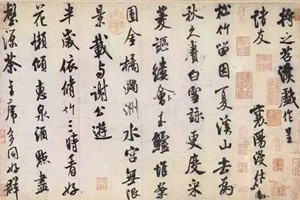 將之苕溪戲作呈
諸友
襄陽漫仕黻
松竹留因夏溪山去為
秋久賡白雪詠更度采
菱謳縷會玉鱸堆案
團金橘滿洲水宮無限
景載與謝公遊
半歲依修竹三時看好
花懶傾惠泉酒點盡
壑源茶主席多同好群